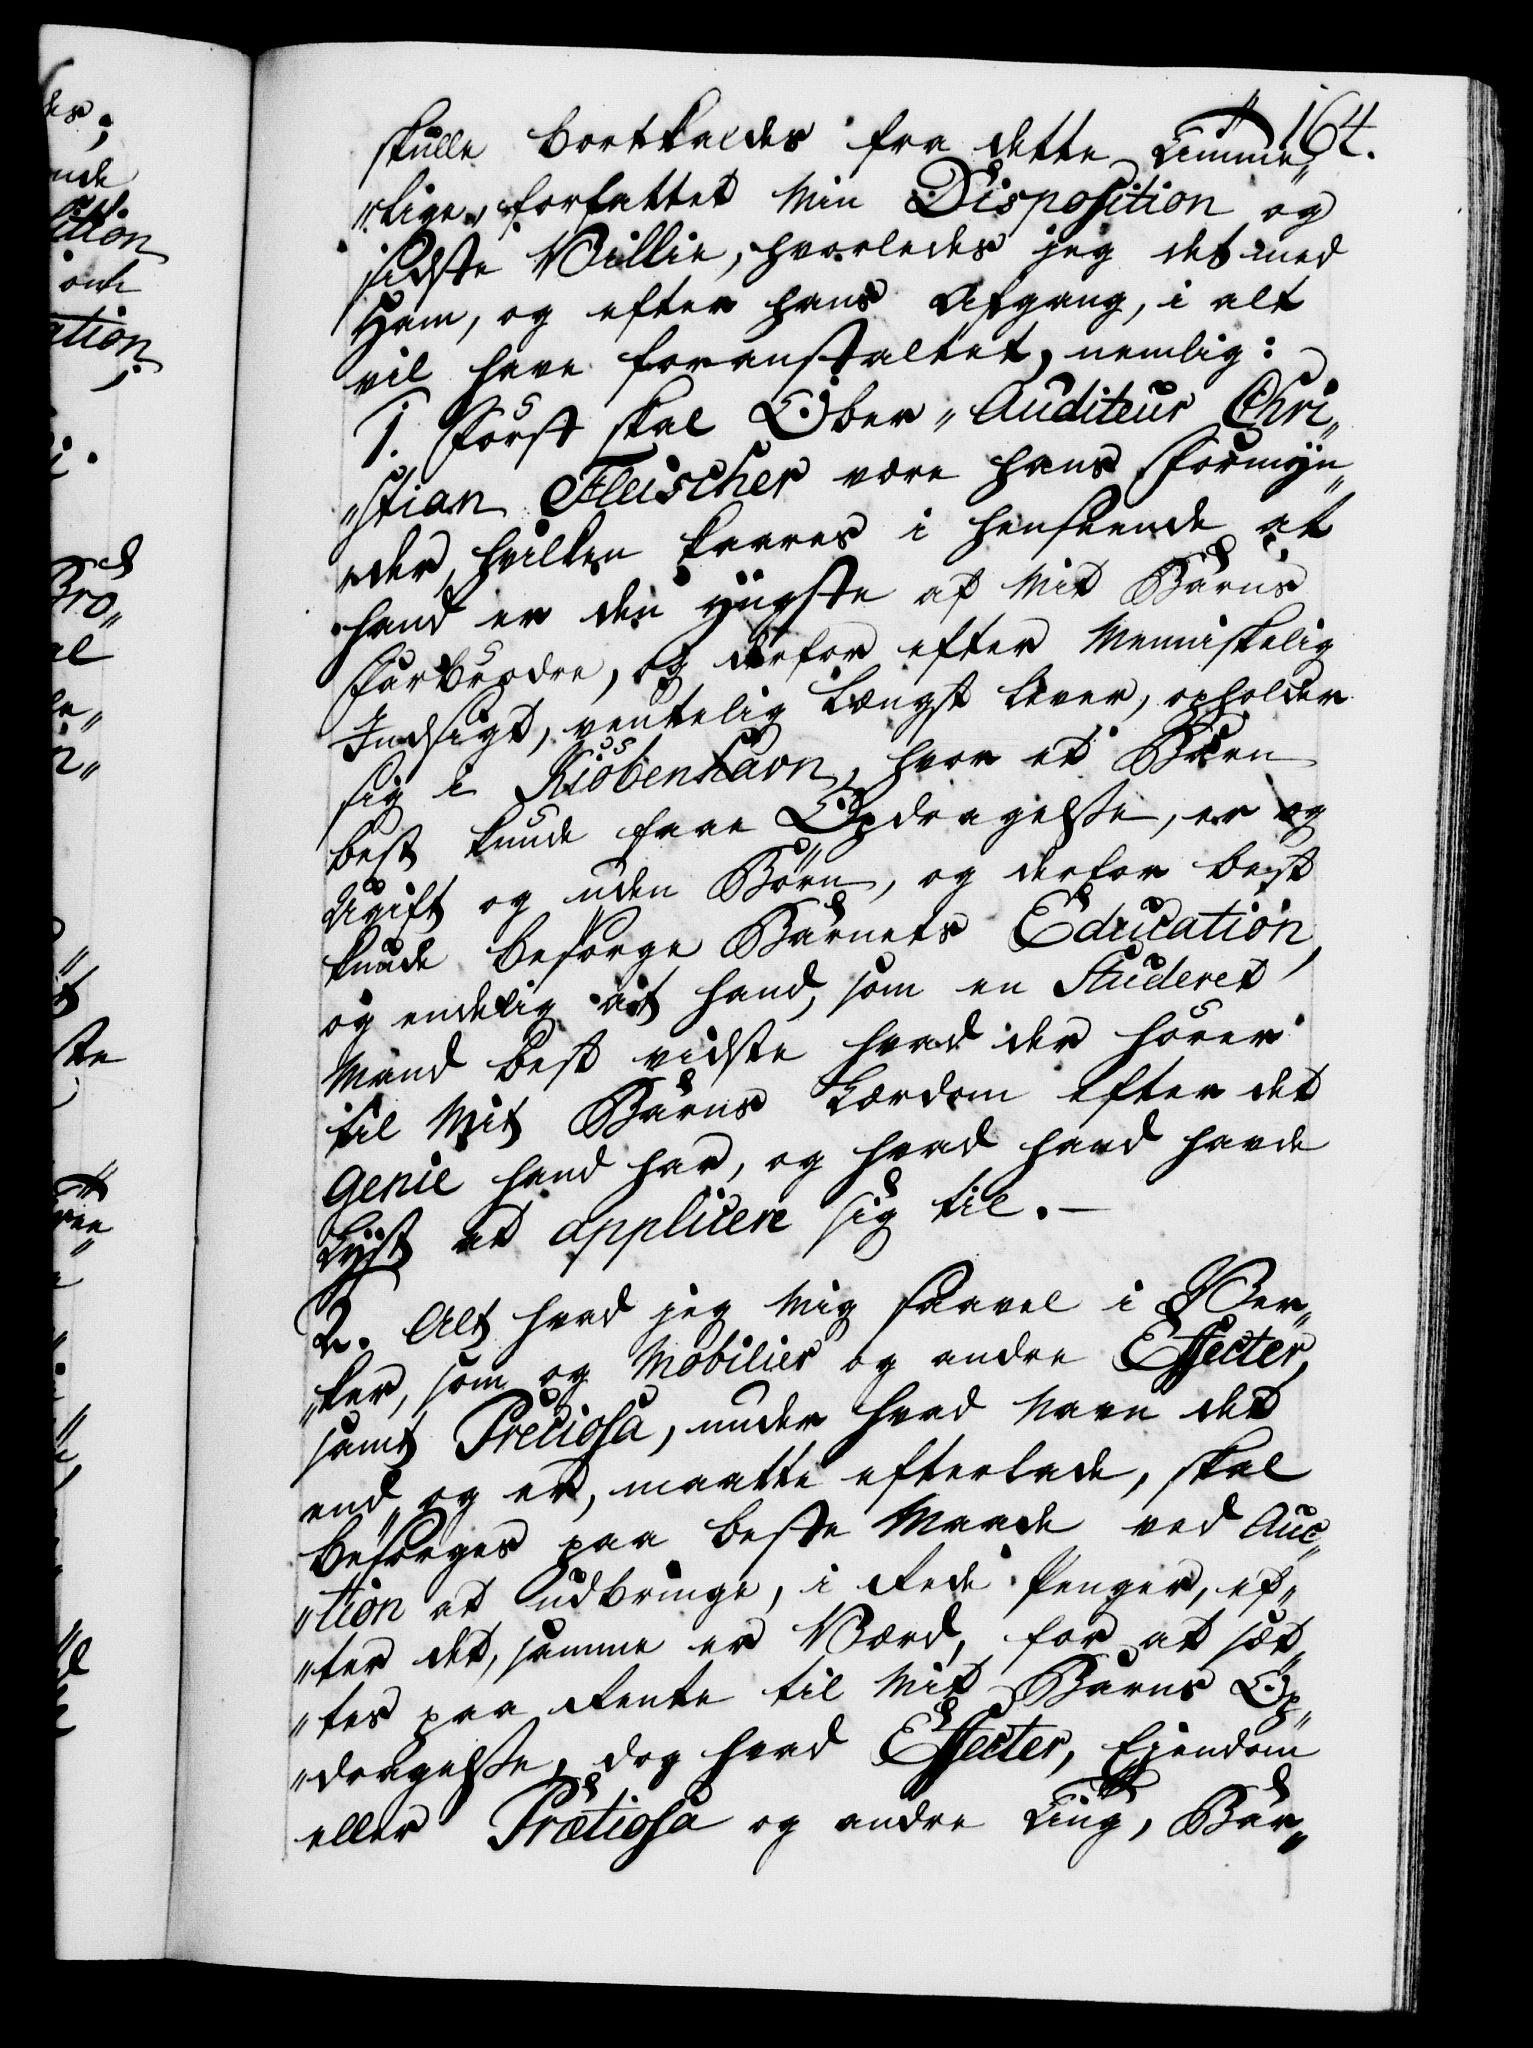 164.
skulle bortkaldes fra dette Timme„
„lige, forfattet Min Disposition og
sidste Villie, hvorledes jeg det med
Ham, og efter hans Afgang, i alt
vil have foranstaltet, nemlig:
1. Först skal Ober„Auditeur Chri„
„stian Fleischer være hans Formÿn„
„der, hvilken kaares i henseende at
hand er den ÿngste af Mit Barns
Farbrødre, og derfor efter Menniskelig
Indsigt, ventelig længst lever, opholder
sig i Kiöbenhavn, hvor et Barn
best kunde faae Opdragelse, er og
Ugift og uden Börn, og derfor best
kunde besorge Barnets Education,
og endelig at hand, som en Studeret
Mand best vidste hvad der hörer
til Mit Barns Lærdom efter det
Genie hand har, og hvad hand havde
Lÿst at applicere sig til. —
2. Alt hvad jeg Mig saavel i Ver„
„ker, som og Mobilier og andre Effecter,
samt Preciosa, under hvad Navn det
end og er, maatte efterlade, skal
besorges paa beste Maade ved Auc„
„tion at udbringe, i rede Penger, ef„
„ter det, samme er Værd, for at sæt„
„tes paa Rente til Mit Barns Op„
„dragelse, dog hvad Effecter, Ejendom
eller Prætiosa og andre Ting, Bar„